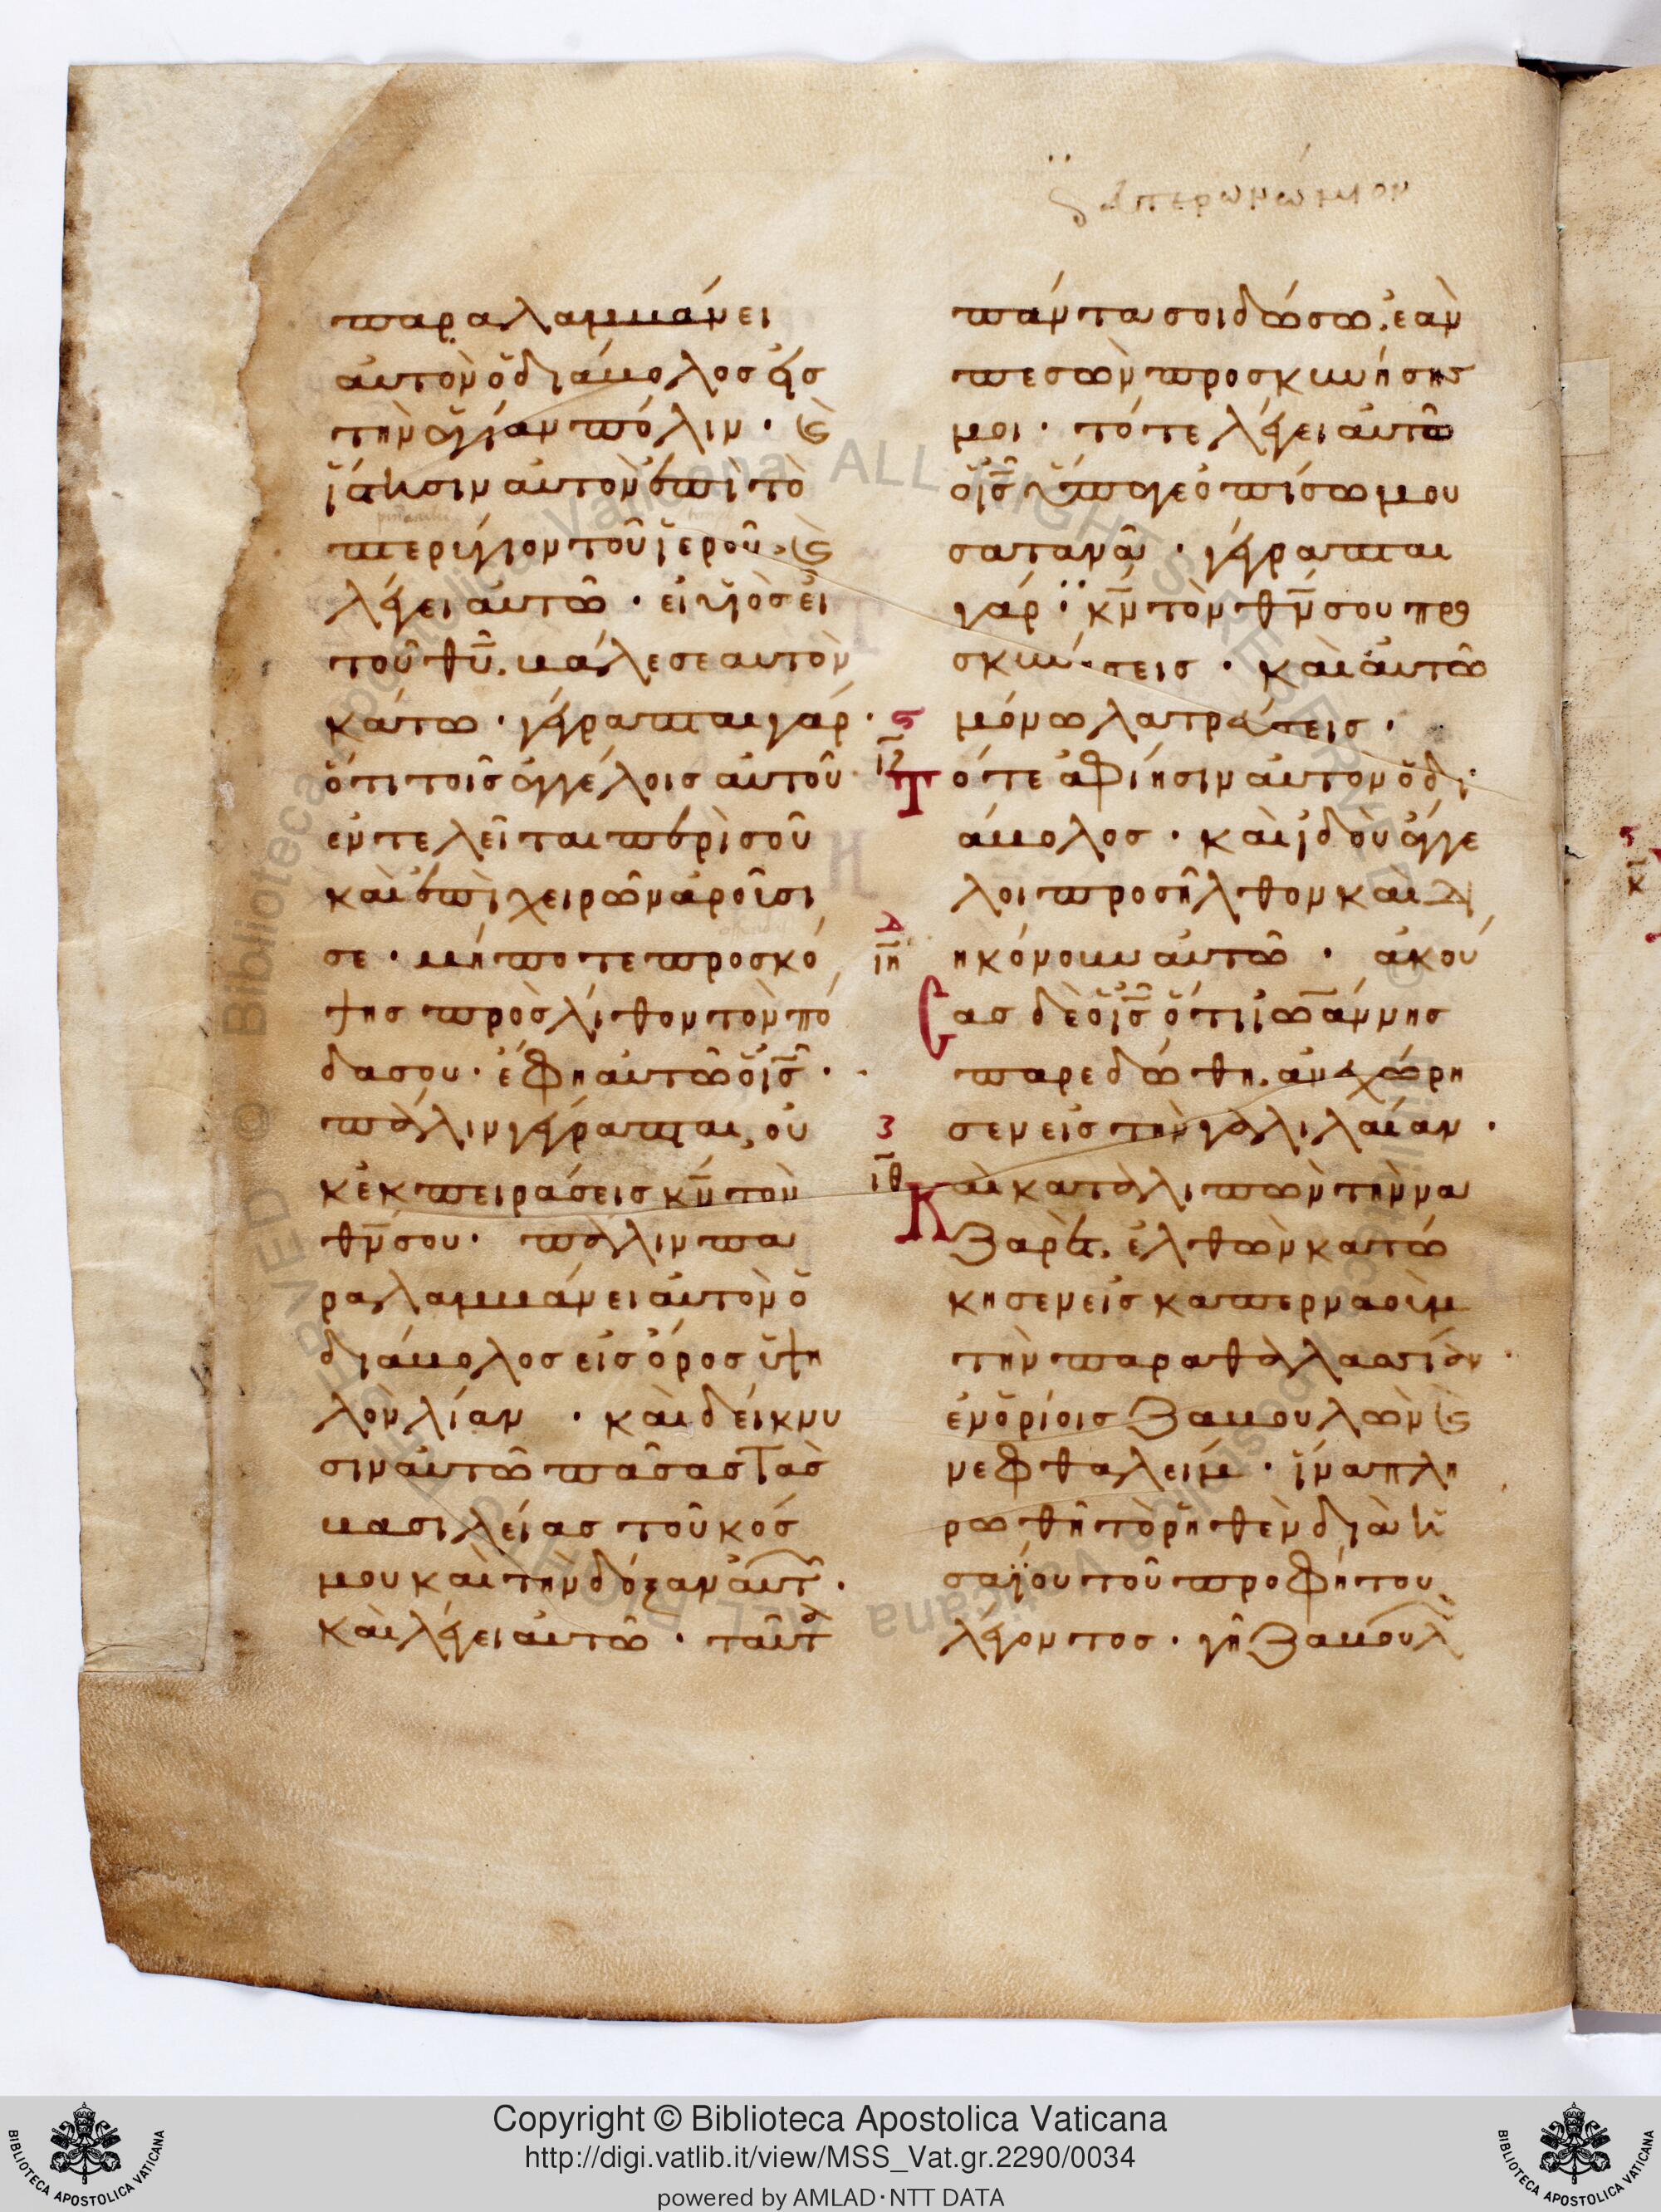 παραλαμβάνει
αὐτὸν ὁ διάβολος εἰς
τὴν ἁγίαν πόλιν · (καὶ)
ἵστησιν αὐτὸν ἐπὶ τὸ
πτερύγιον τοῦ ἱεροῦ · (καὶ)
λέγει αὐτῶ · εἰ υἱὸς εἶ
τοῦ θῦ, βάλε σεαυτὸν
κάτω · γέγραπται γάρ ·
ὅτι τοῖς ἀγγέλοις αὐτοῦ
ἐντελεῖται περὶ σοῦ
καὶ ἐπὶ χειρῶν ἀροῦσί
σε · μήποτε προσκό
ψης πρὸς λίθον τὸν πό
δα σου · ἔφη αὐτῶ ὁ ἰς ·
πάλιν γέγραπται, οὐ
κ ἐκπειράσεις κν τὸν
θν σου · πάλιν πα
ραλαμβάνει αὐτὸν ὁ
διάβολος εἰς ὄρος ὑψη
λὸν λίαν · καὶ δείκνυ
σιν αὐτῶ πάσας τὰς
βασιλείας τοῦ κόσ
μου καὶ τὴν δόξαν αὐτ ·
καὶ λέγει αὐτῶ · ταῦτα
πάντα σοι δώσω, ἐὰν
πεσὼν προσκυνήσης
μοι · τότε λέγει αὐτῶ
ὁ ἰς ὕπαγε ὀπίσω μου
σατανᾶ · γέγραπται
γάρ · κν τὸν θν σου προ
σκυνήσεις · καὶ αὐτῶ
μόνω λατρεύσεις ·
ς
ιζ
Τότε ἀφίησιν αὐτὸν ὁ δι
άβολος · καὶ ἰδοὺ ἄγγε
λοι προσῆλθον καὶ δι
Δ
ιη
ηκόνουν αὐτῶ · ἀκού
Cας δὲ ὁ ις ὅτι ἰωάννης
παρεδόθη, ἀνεχώρη
Ζ
σεν εἰς τὴν γαλιλαίαν ·
ιθ
Καὶ καταλιπὼν τὴν να
ζαρὲτ, ἐλθὼν κατώ
κησεν εἰς καπερναοὺμ
τὴν παραθαλασσίαν ·
ἐν ὁρίοις ζαβουλὼν (καὶ)
νεφθαλείμ · ἵνα πλη
ρωθῆ τὸ ῥηθὲν διὰ ἡ
σαΐου τοῦ προφήτου
λέγοντος · γῆ ζαβουλ
Copyright © Biblioteca Apostolica Vaticana
http://digi.vatlib.it/view/MSS_Vat.gr.2290/0034
powered by AMLAD·NTT DATA
BIBLIOTECA APOSTOLICA VATICANA
BIBLIOTECA APOSTOLICA VATICANA